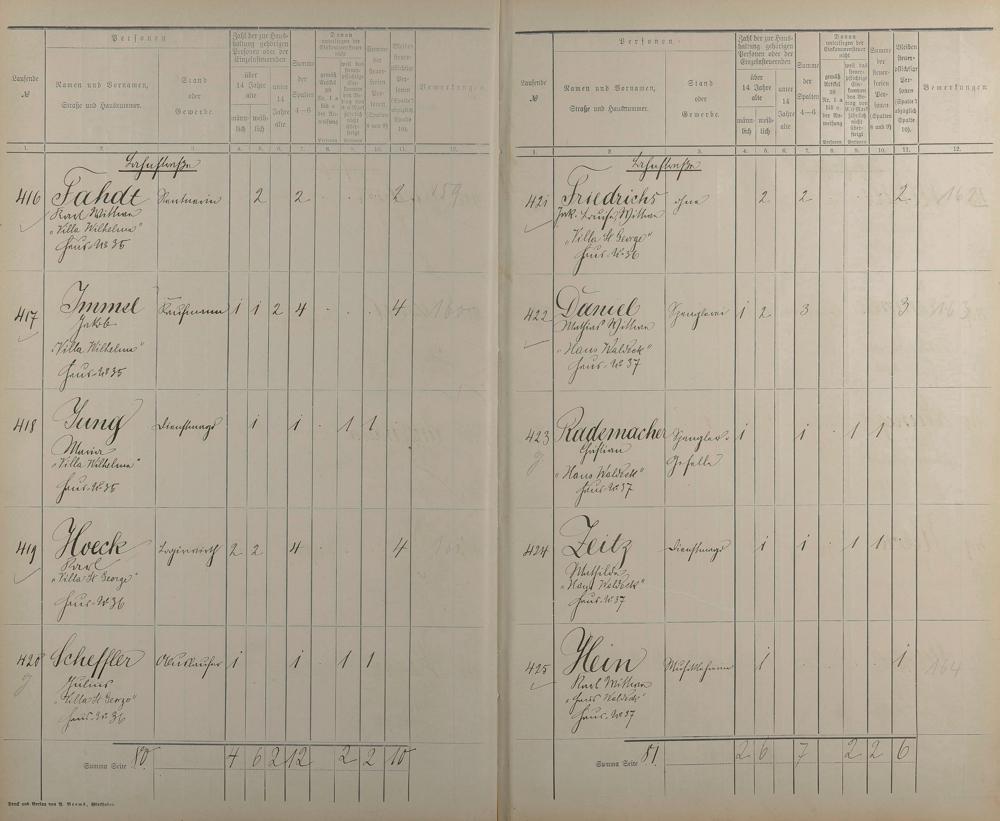 Personen
Zahl der zur Haushaltung gehörigen Personen oder der Einzelsteuernden
Davon unterliegen der Einkommensteuer nicht
Laufende №
Namen und Vornamen,
Straße und Hausnummer.
Stand
oder
Gewerbe.
über 14 Jahre alte
unter 14 Jahre alte
männlich
weiblich
Summe der Spalten 4—6
Summe der steuerfreien Personen (Spalten 8 und 9)
Bleiben steuerpflichtige Personen (Spalte 7 abzüglich Spalte 10).
Bemerkungen
1. 2. 3. 4. 5. 6. 7. 8. 9. 10. 11. 12.
Bahnstraße
416 Fahdt Rentnerin 2 2 . . . 2
Karl Wittwe
"Villa Wilhelma"
Haus-№ 35
417 Immel Kaufmann 1 1 2 4 . . . 4
Jakob
"Villa Wilhelma"
Haus-№ 35
418 Jung Dienstmagd 1 1 . 1 1
Maria
"Villa Wilhelma"
Haus-№ 35
419 Hoeck Logirwirth 2 2 4 . . . 4
Karl
"Villa St George"
Haus-№ 36
420 Scheffler Hauslaufer 1 1 . 1 1
Julius
"Villa St George"
Haus-№ 36
Summa Seite 80. 4 6 2 12 2 2 10
Druck und Verlag von
Wiesbaden
Personen
Zahl der zur Haushaltung gehörigen Personen oder der Einzelsteuernden
Davon unterliegen der Einkommensteuer nicht
Laufende №
Namen und Vornamen,
Straße und Hausnummer.
Stand
oder
Gewerbe.
über 14 Jahre alte
unter 14 Jahre alte
männlich
weiblich
Summe der Spalten 4—6
Summe der steuerfreien Personen (Spalten 8 und 9)
Bleiben steuerpflichtige Personen (Spalte 7 abzüglich Spalte 10).
Bemerkungen
1. 2. 3. 4. 5. 6. 7. 8. 9. 10. 11. 12.
Bahnstraße
421 Friedrichs ohne 2 2 . . . 2
Wittwe
"Villa St George"
Haus-№ 36
422 Daniel Spenglerei 1 2 3 . . . 3
Mathias Wittwe
"Haus Waldeck"
Haus-№ 37
423 Rademacher Spengler- 1 1 . 1 1
Christian Geselle
"Haus Waldeck"
Haus-№ 37
424 Zeitz Dienstmagd 1 1 . 1 1
Mathilde
"Haus Waldeck"
Haus-№ 37
425 Hein 1 1
Karl Wittwe
"Haus Waldeck"
Haus-№ 37
Summa Seite 81. 2 6 7 2 2 6